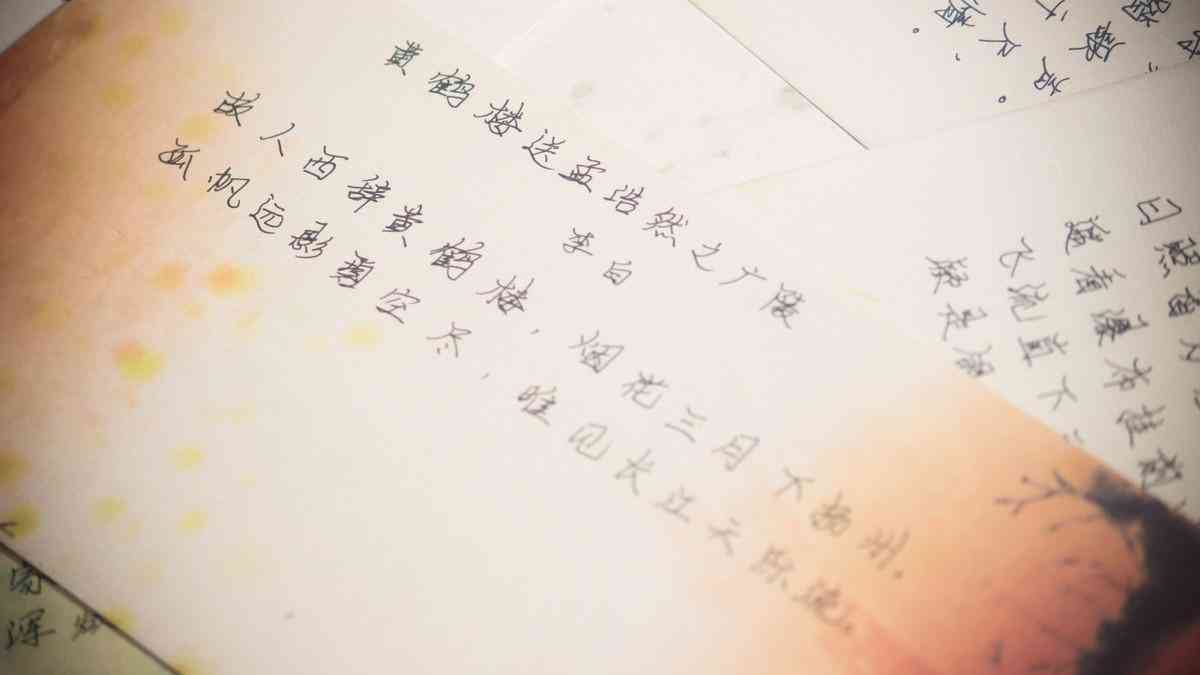 黄鹤楼送孟浩然之广陵
李白
故人西辞黄鹤楼,烟花三月下扬州.
孤帆远影碧空尽,唯见长江天际流.
日照香
遥看瀑布挂前
飞流直下
疑是银
深